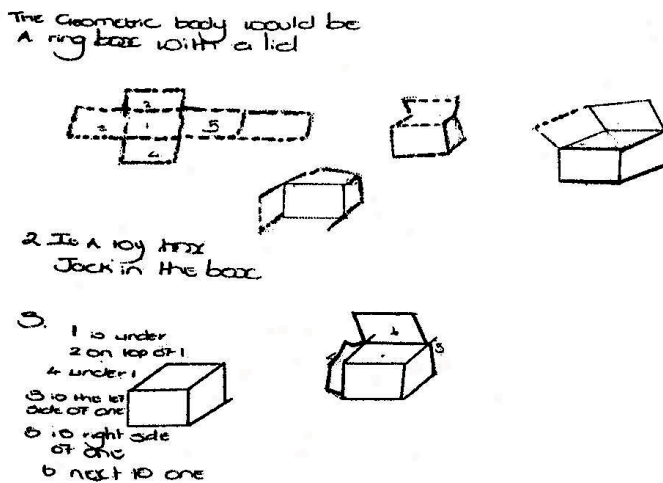 The Geometric body would be
A ring box with a lid
2
3 1 5
4
2 Is A toy box
Jack in the box
3.
1 is under
2 on top of 1
4 under 1
3 is the left
side of one
5 is right side
of one
6 next to one
6
5